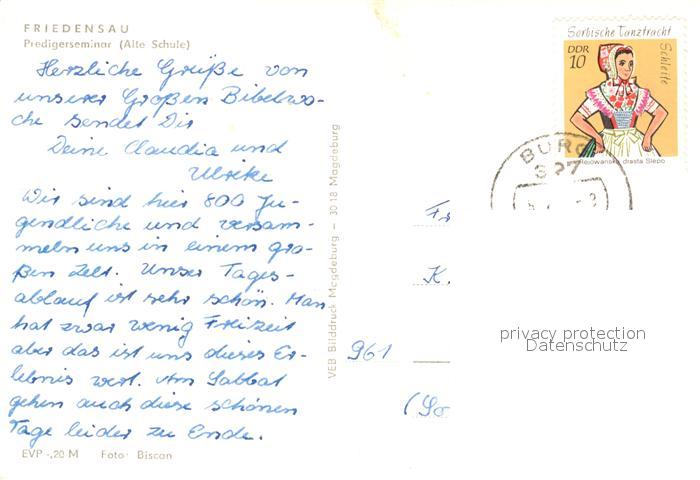 FRIEDENSAU
Predigerseminar (Alte Schule)
Herzliche Grüße von
unserer Großen Bibelwo-
che sendet Dir
Deine Claudia und
Ulrike
Wir sind hier 800 Ju-
gendliche und versam-
meln uns in einem gro-
ßen Zelt. Unser Tages-
ablauf ist sehr schön. Man
hat zwar wenig Freizeit
aber das ist uns dieses Er-
lebnis wert. Am Sabbat
gehen auch diese schönen
Tage leider zu Ende.
EVP -,20 M Foto: Biscan
VEB Bilddruck Magdeburg – 3018 Magdeburg
Sorbische Tanztracht
Schleife
DDR
10
Rejowanska drasta Slepo
BURG
327
Fr
K.
961
(So
privacy protection
Datenschutz